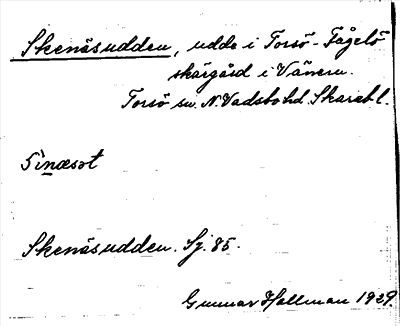 Skenäsudden, udde i Torsö-Fågelö
skärgård i Vänern.
Torsö sn. N. Vadsbo hd. Skarab. l.
Sjinæsət
Skenäsudden. Sj. 85.
Gunnar Hallman 1929.